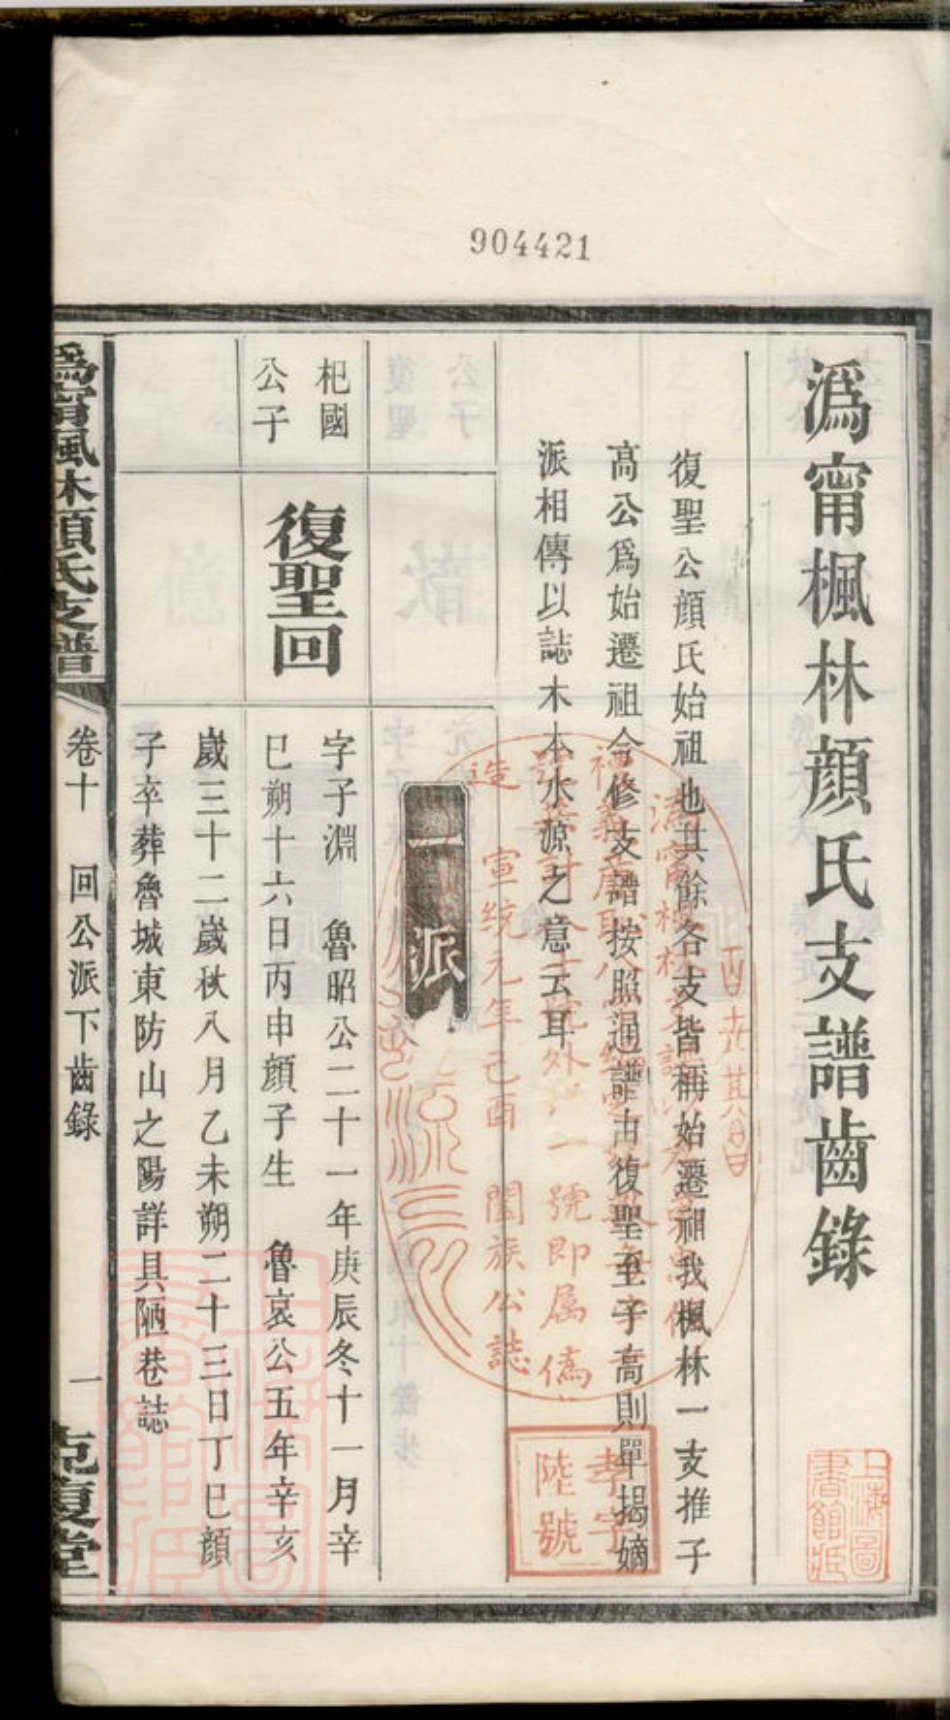 904421
溈甯楓林顔氏支譜齒錄
復聖公顔氏始祖也其餘各支皆稱始遷祖我楓林一支推子
高公爲始遷祖今修支譜按照通譜由復聖至子高則單揭嫡
派相傳以誌木本水源之意云耳
一派
杞國
公子
復聖回
字子淵 魯昭公二十一年庚辰冬十一月辛
巳朔十六日丙申顔子生 魯哀公五年辛亥
嵗三十二嵗秋八月乙未朔二十三日丁巳顔
子卒葬魯城東防山之陽詳具陋巷誌
溈甯楓林顔氏支譜
卷十 回公派下齒錄
一
克復堂
宣統元年己酉 闔族公誌
號外 一號即属僞
孝字
陸號
上海圖
書館藏